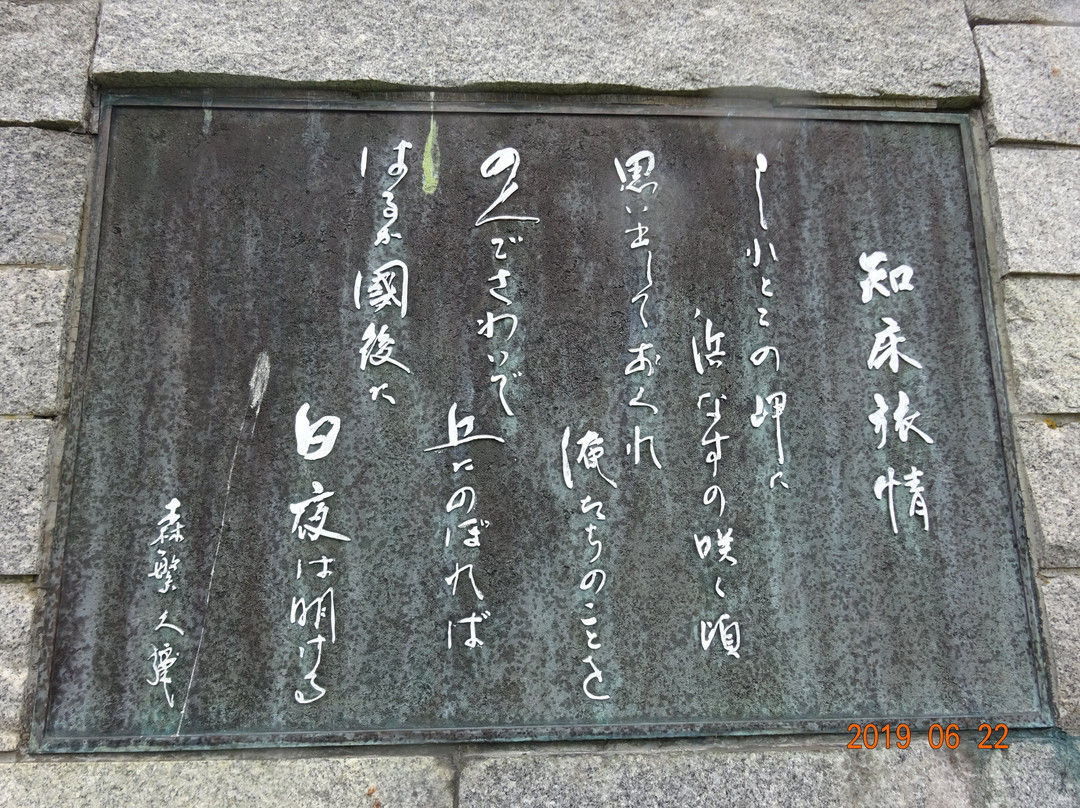 知床旅情
しれとこの岬に
浜なすの咲く頃
思い出しておくれ
俺たちのことを
のんでさわいで
丘にのぼれば
はるか國後に
白夜は明ける
森繁久彌
2019 06 22